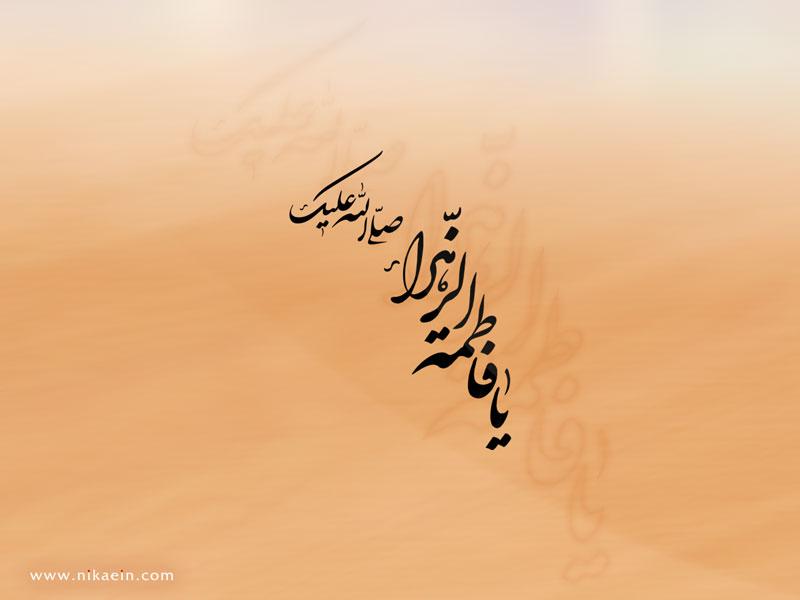 يا فاطمة الزهراء
صلّى الله عليک
www.nikaein.com